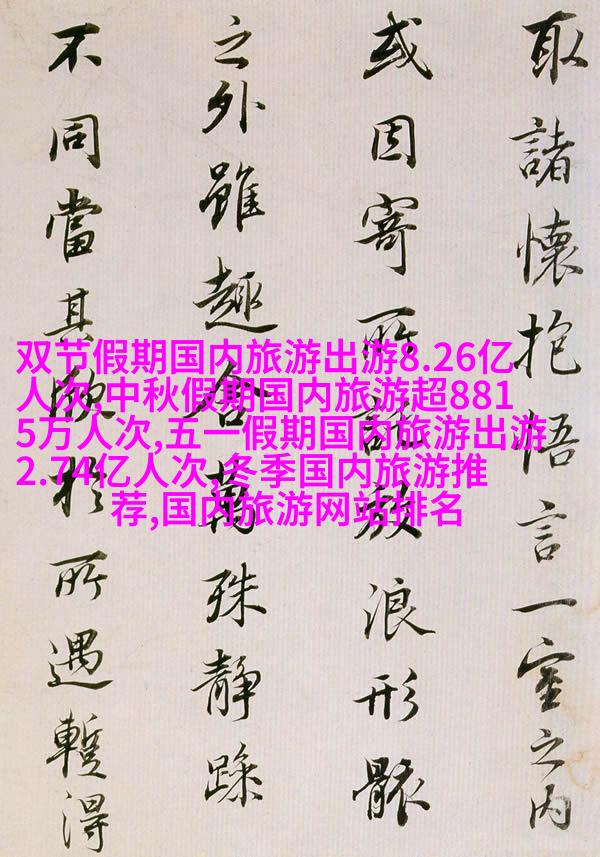 取諸懷抱悟言一室之内
或因寄所託放浪形骸
之外雖趣舍萬殊静躁
不同當其欣於所遇暫得
双节假期国内旅游出游8.26亿
人次,中秋假期国内旅游超881
5万人次,五一假期国内旅游出游
2.74亿人次,冬季国内旅游推
荐,国内旅游网站排名